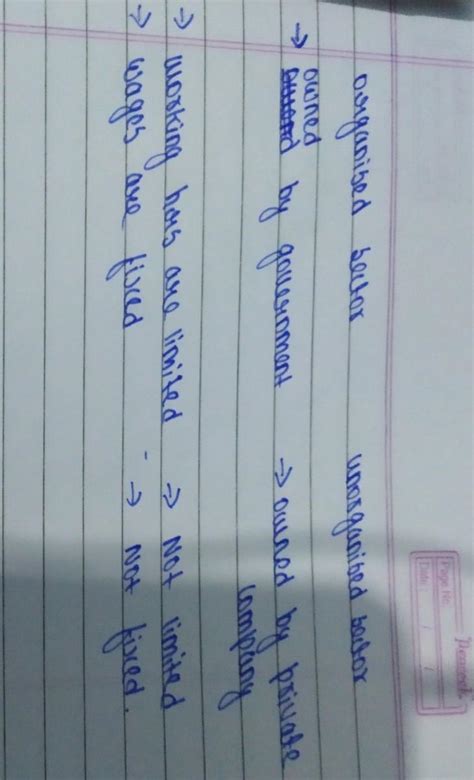 Page No.
Date: / /
organised sector unorganised sector
→ owned by government → owned by private
company
→ working hors are limited → Not limited
→ wages are fixed - → Not fixed.